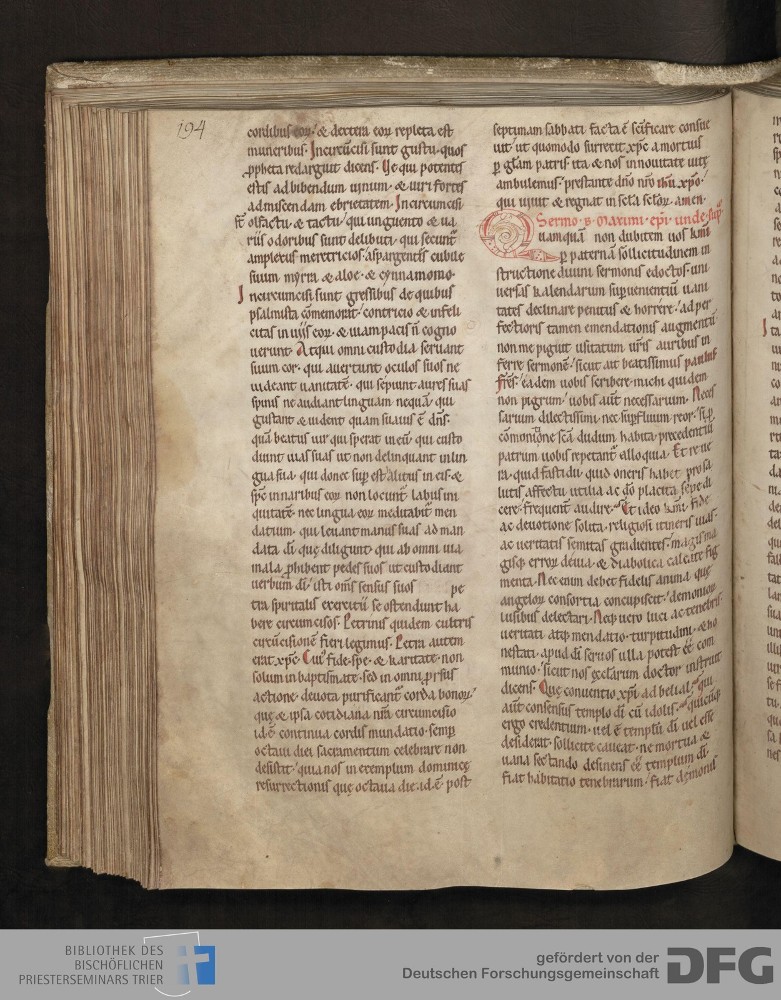 194
cordibus eoꝝ· & dextera eoꝝ repleta est
muneribus· Incircūcisi sunt gustu· quos
ꝓpheta redarguit dicens· Ve qui potentes
estis ad bibendum uinum· & uiri fortes
ad miscendam ebrietatem· Incircumcisi
st̄ olfactu· & tactu· qui unguento & ua
riis odoribus sunt delibuti· qui secunt̄
amplexus meretricios· aspargentes cubile
suum myrra & aloe· & cynnamomo·
Incircumcisi sunt gressibus de quibus
psalmista cōmemorat· contricio & infeli
citas in uiis eoꝝ· & uiam pacis n̄ cogno
uerunt· Atqui omni custodia seruant
suum cor· qui auertunt oculos suos ne
uideant uanitatē· qui sepiunt aures suas
spinis ne audiant linguam nequā· qui
gustant & uident quam suauis ē dn̄s·
quā beatus uir qui sperat in eū· qui custo
diunt uias suas ut non delinquant in lin
gua sua· qui donec sup est alitus in eis· &
sp̄c in naribus eoꝝ non locunt̄ labus ini
quitatē· nec lingua eoꝝ meditabit̄ men
datium· qui leuant manus suas ad man
data dī· quę diligunt· qui ab omni uia
mala ꝓhibent pedes suos ut custodiant
uerbum dī· isti om̄s sensus suos pe
tra spiritalis exercitii se ostendunt ha
bere circumcisos· Petrinis quidem cultris
circūcisionē fieri legimus· Petra autem
erat xp̄c· Cui fide· spe· & karitate· non
solum in baptismate· sed in omni ꝓrsus
actione· deuota purificant̄ corda bonoꝝ·
quę & ipsa cotidiana nr̄a circumcisio
id·ē· continua cordis mundatio· semꝑ
octaui diei sacramentum celebrare non
desistit· quia nos in exemplum dominicę
resurrectionis quę octaua die· id·ē· post
septimam sabbati facta ē sc̄ificare consue
uit· ut quomodo surrexit xp̄c a mortuis
ꝑ glam patris· ita & nos in nouitate uitę
ambulemus· prestante dn̄o nr̄o ihū xp̄o·
qui uiuit & regnat in sc̄la sc̄loꝝ· amen·
Sermo· s· Maximi· ep̄i· unde sup̄
Quamquā non dubitem uos km̄i
ꝑ paternā sollicitudinem in
structione diuini sermonis edoctos· uni
uersas kalendarum superuenientiū uani
tates declinare penitus & horrere· ad per
fectioris tamen emendationis augmentū
non me piguit usitatum ur̄is auribus in
ferre sermonē· sicut ait beatissimus paulus
Fr̄es· eadem uobis scribere· michi quidem
non pigrum· uobis aūt necessarium· Neces
sarium dilectissimi· nec supfluum reor· si ꝑ
cōmonitionē sc̄ā dudum habita· precedentiū
patrum uobis repetant̄ alloquia· Et re ue
ra· quid fastidii· quid oneris habet pro sa
lutis affectu utilia ac dō placita sepe di
cere· frequent̄ audire· Et ideo km̄i fide
ac deuotione soluta· religiosi itineris uias·
ac ueritatis semitas gradientes· magis ma
gisq; erroꝝ deuia· & diabolica calcate fig
menta· Nec enim debet fidelis anima quę
angeloꝝ consortia concupiscit· demonioꝝ
lusibus delectari· Neq; uero luci ac tenebris·
ueritati atq; mendatio· turpitudini· & ho
nestati· apud dī seruos ulla potest eē com
munio· sicut nos ęcclarum doctor instruit
dicens· Que conuentio xp̄i ad belial· qui
aūt consensus templo dī cū idolis· quicūq;
ergo credentium· uel ē templū dī uel esse
desiderat· sollicite caueat· ne mortua &
uana sectando desinens eē templum dī·
fiat habitatio tenebrarum· fiat demonis
BIBLIOTHEK DES
BISCHÖFLICHEN
PRIESTERSEMINARS TRIER
gefördert von der
Deutschen Forschungsgemeinschaft
DFG